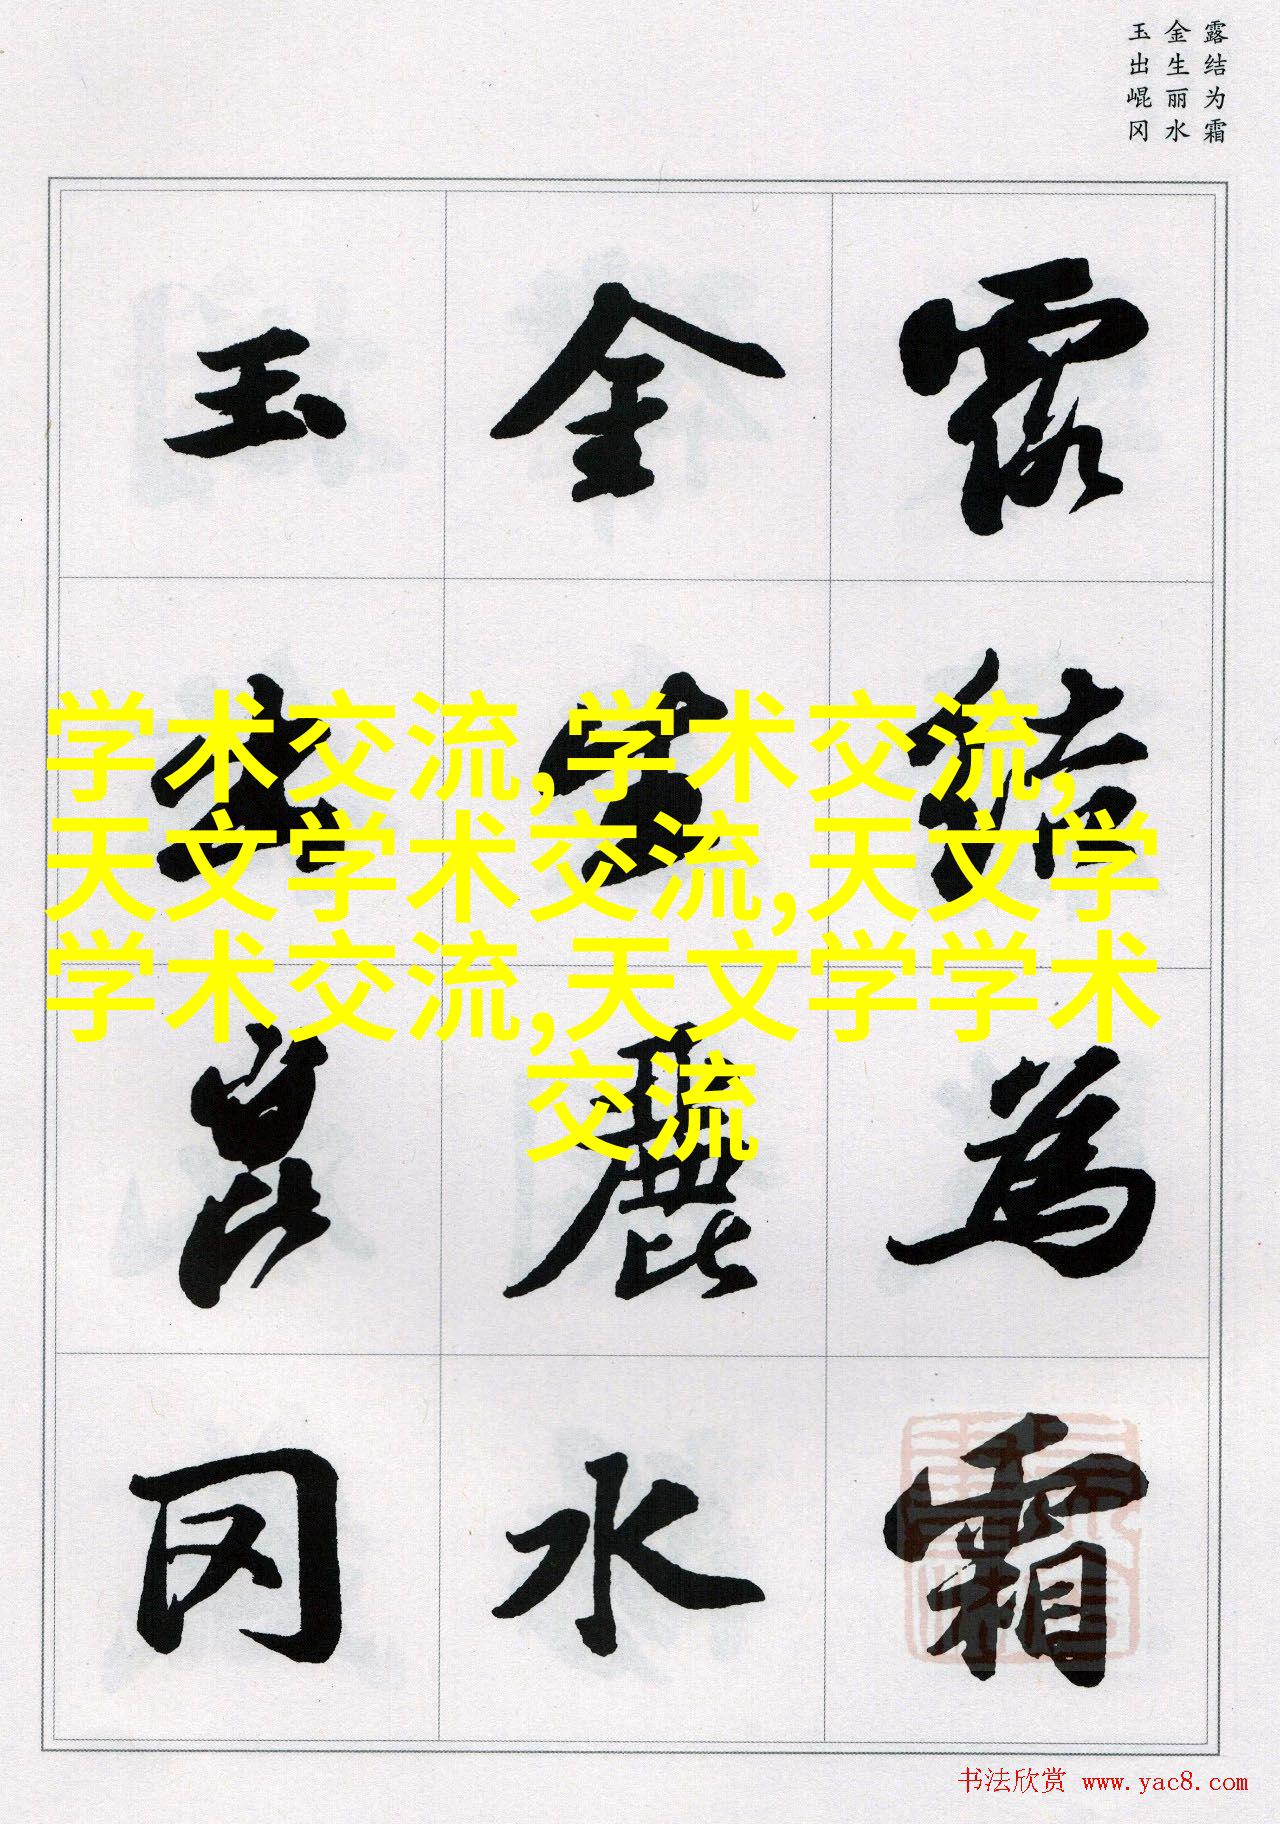 露结为霜
金生丽水
玉出崐冈
露結為霜
金生麗水
玉出崑冈
学术交流,学术交流,
天文学术交流,天文学
学术交流,天文学学术
交流
书法欣赏 www.yac8.com